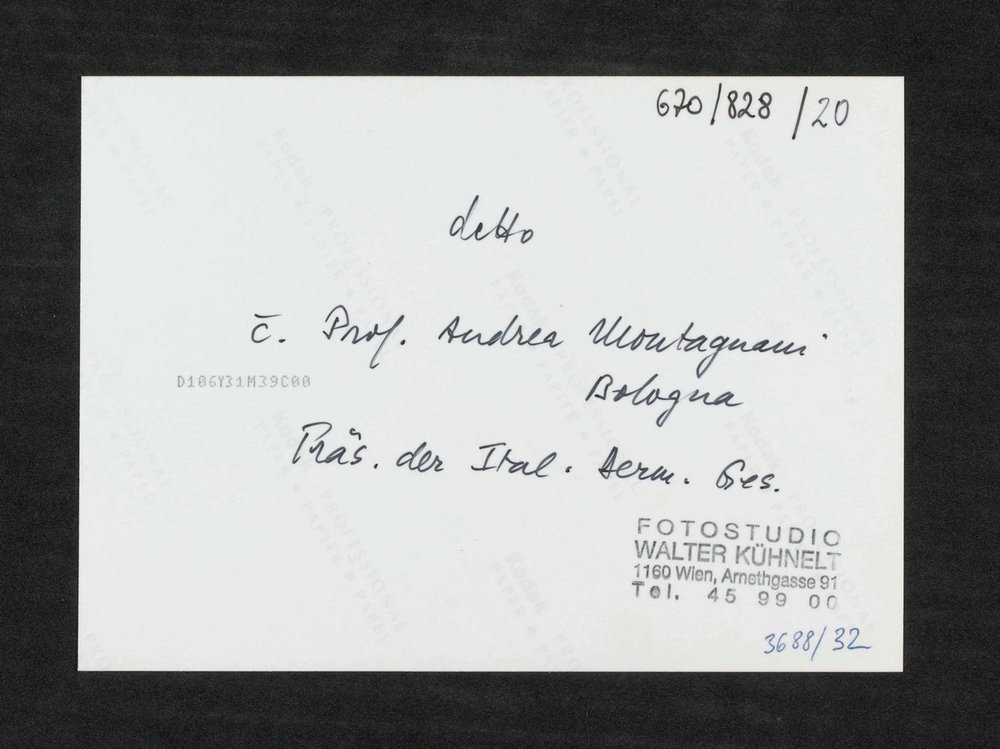 670/828 /20
detto
c̄. Prof. Andrea Montagnani
Bologna
D106Y31M39C00
Präs. der Ital. Derm. Ges.
FOTOSTUDIO
WALTER KÜHNELT
1160 Wien, Arnethgasse 91
Tel. 45 99 00
3688/32